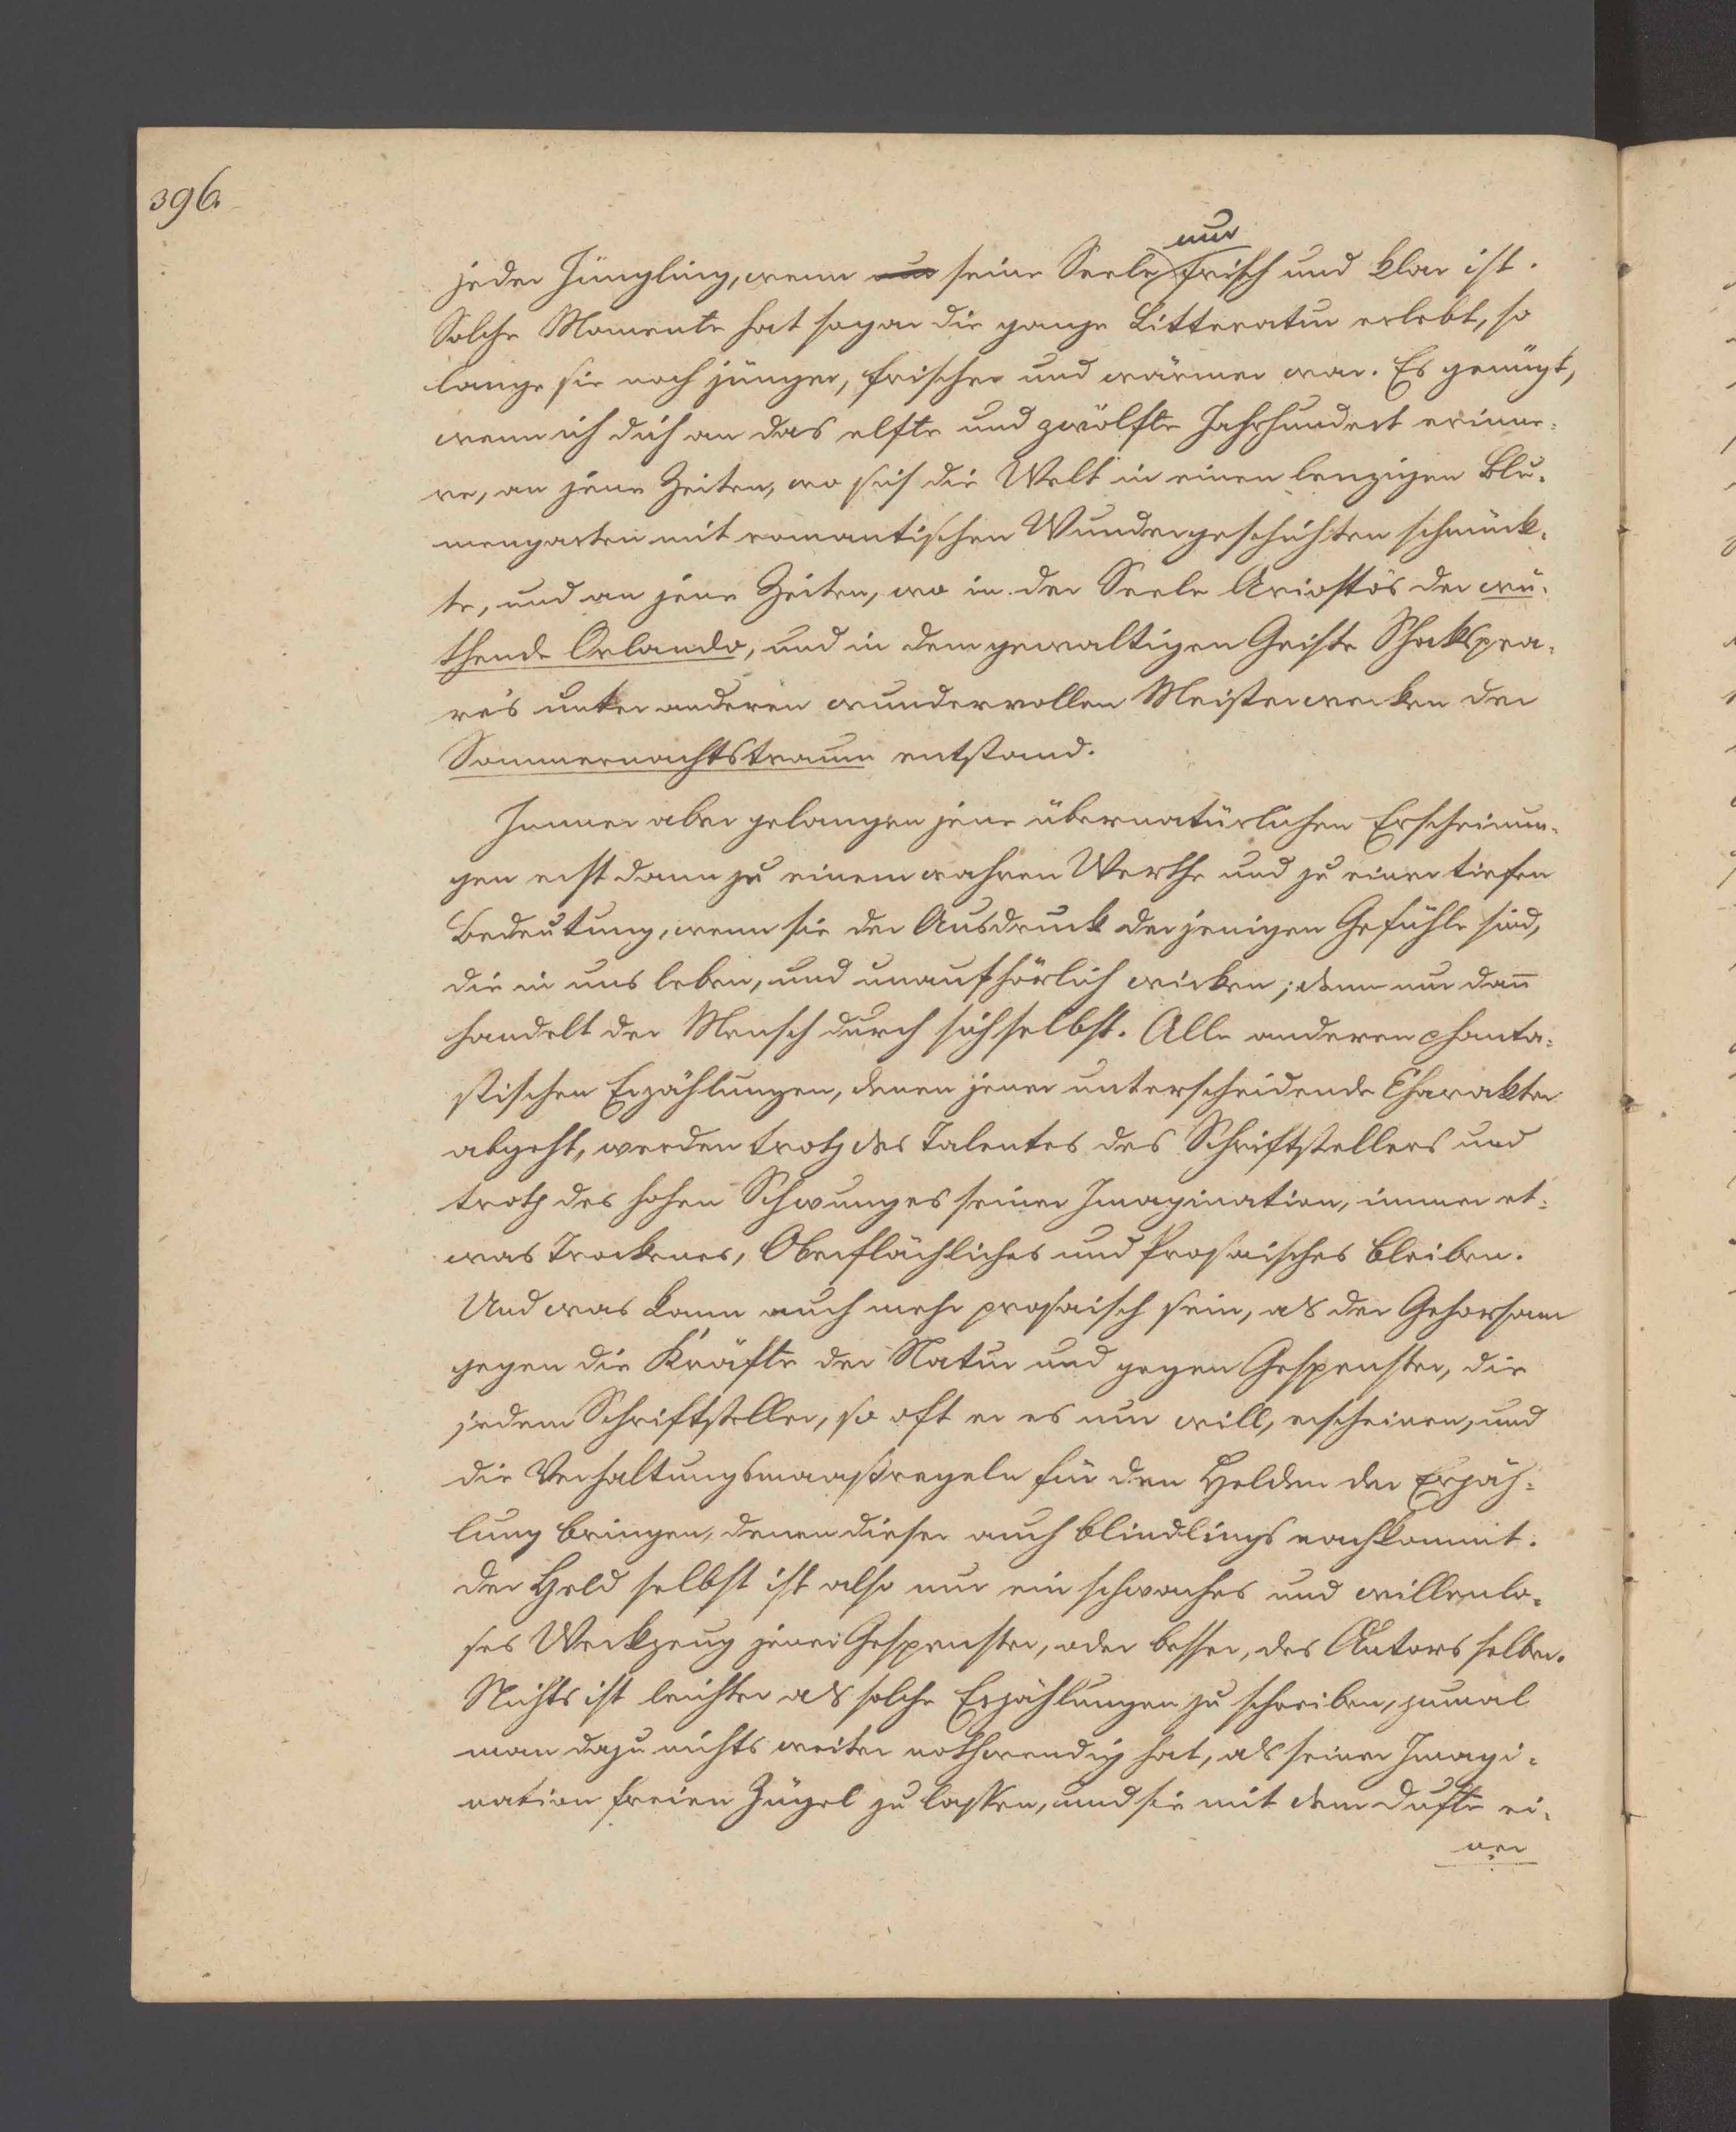 396.
nur
jeder Jüngling, wenn nur seine Seele frisch und klar ist.
Solche Momente hat sogar die ganze Litteratur erlebt, so
lange sie noch jünger, frischer und wärmer war. Es genügt,
wenn ich dich an das elfte und zwölfte Jahrhundert erinne-
re, an jene Zeiten, wo sich die Welt in einen lenzigen Blu-
mengarten mit romantischen Wundergeschichten schmück-
te, und an jene Zeiten, wo in der Seele Ariosto's der wü-
thende Orlando, und in dem gewaltigen Geiste Shakspea-
re's unter anderen wundervollen Meisterwerken der
Sommernachtstraum entstand.
Immer aber gelangen jene übernatürlichen Erscheinun-
gen erst dann zu einem wahren Werthe und zu einer tiefen
Bedeutung, wenn sie der Ausdruck derjenigen Gefühle sind,
die in uns leben, und unaufhörlich wirken; denn nur dan̄
handelt der Mensch durch sich selbst. Alle anderen phanta-
stischen Erzählungen, denen jener unterscheidende Charakter
abgeht, werden trotz des Talentes des Schriftstellers und
trotz des hohen Schwunges seiner Imagination, immer et-
was Trockenes, Oberflächliches und Prosaisches bleiben.
Und was kann auch mehr prosaisch sein, als der Gehorsam
gegen die Kräfte der Natur und gegen Gespenster, die
jedem Schriftsteller, so oft er es nur will, erscheinen, und
die Verhaltungsmaaßregeln für den Helden der Erzäh-
lung bringen, denen dieser auch blindlings nachkommt.
Der Held selbst ist also nur ein schwaches und willenlo-
ses Werkzeug jener Gespenster, oder besser, des Autors selber.
Nichts ist leichter als solche Erzählungen zu schreiben, zumal
man dazu nichts weiter nothwendig hat, als seiner Imagi-
nation freien Zügel zu lassen, und sie mit dem Dufte ei-
ner